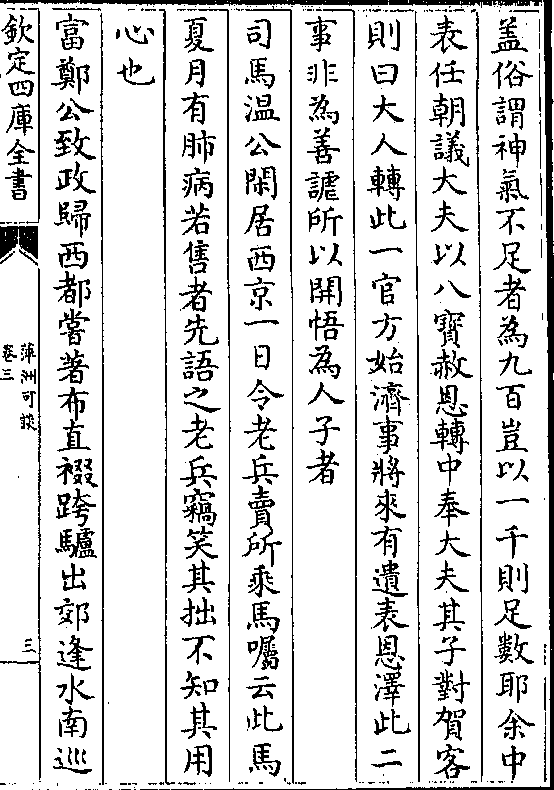 盖俗謂神氣不足者為九百豈以一千則足數耶余中
表任朝議大夫以八寳赦恩轉中奉大夫其子對賀客
則曰大人轉此一官方始濟事將來有遺表恩澤此二
事非為善謔所以開悟為人子者
司馬温公閑居西京一日令老兵賣所乘馬囑云此馬
夏月有肺病若售者先語之老兵竊笑其拙不知其用
心也
富鄭公致政歸西都嘗著布直裰跨驢出郊逢水南巡
欽定四庫全書
萍洲可談
卷三
三